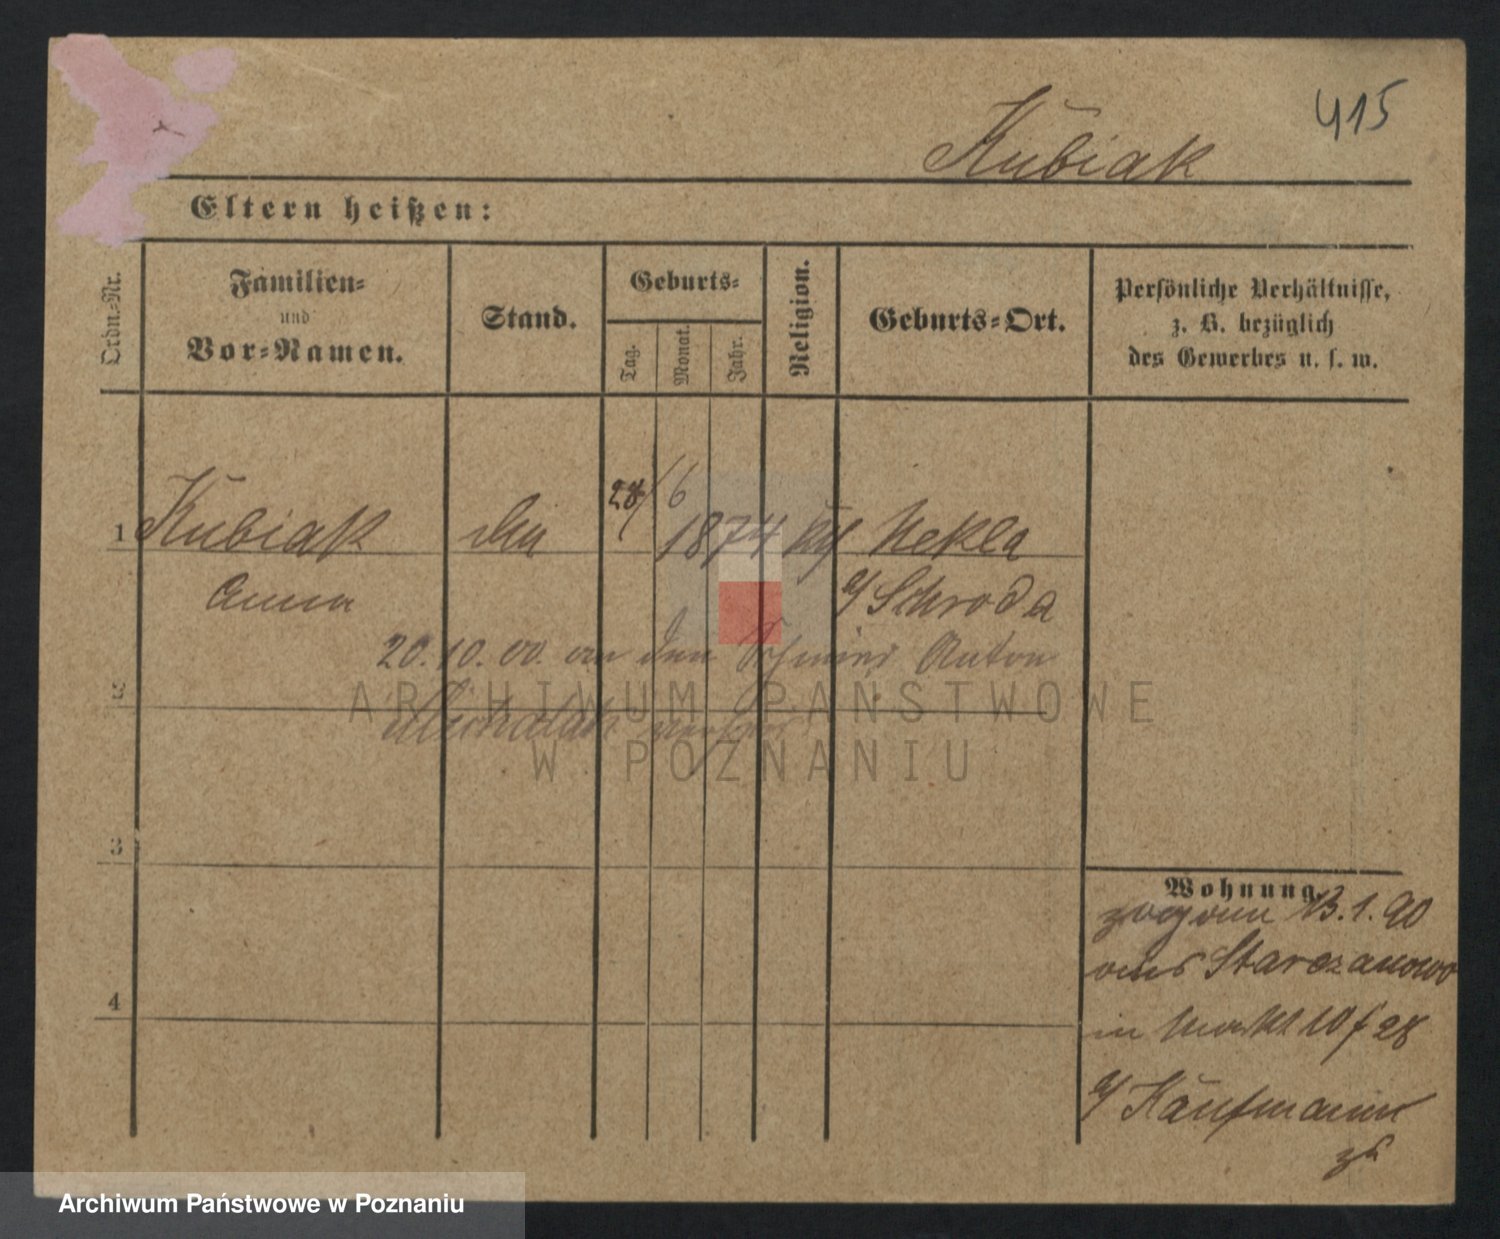 415
Kubiak
Eltern heißen:
Ordn.-Nr.
Familien-
und
Vor-Namen.
Stand.
Geburts-
Tag.
Monat.
Jahr.
Religion.
Geburts-Ort.
Persönliche Verhältnisse,
z. B. bezüglich
des Gewerbes u. s. w.
1 Kubiak 28/6 1874 Nekla
Anna Schroda
20.10.00. an den Anton
2
3
4
Wohnung.
13.1.90
aus Starczanowo
in Markt 10 28
Kaufmann
ARCHIWUM PAŃSTWOWE
W POZNANIU
Archiwum Państwowe w Poznaniu